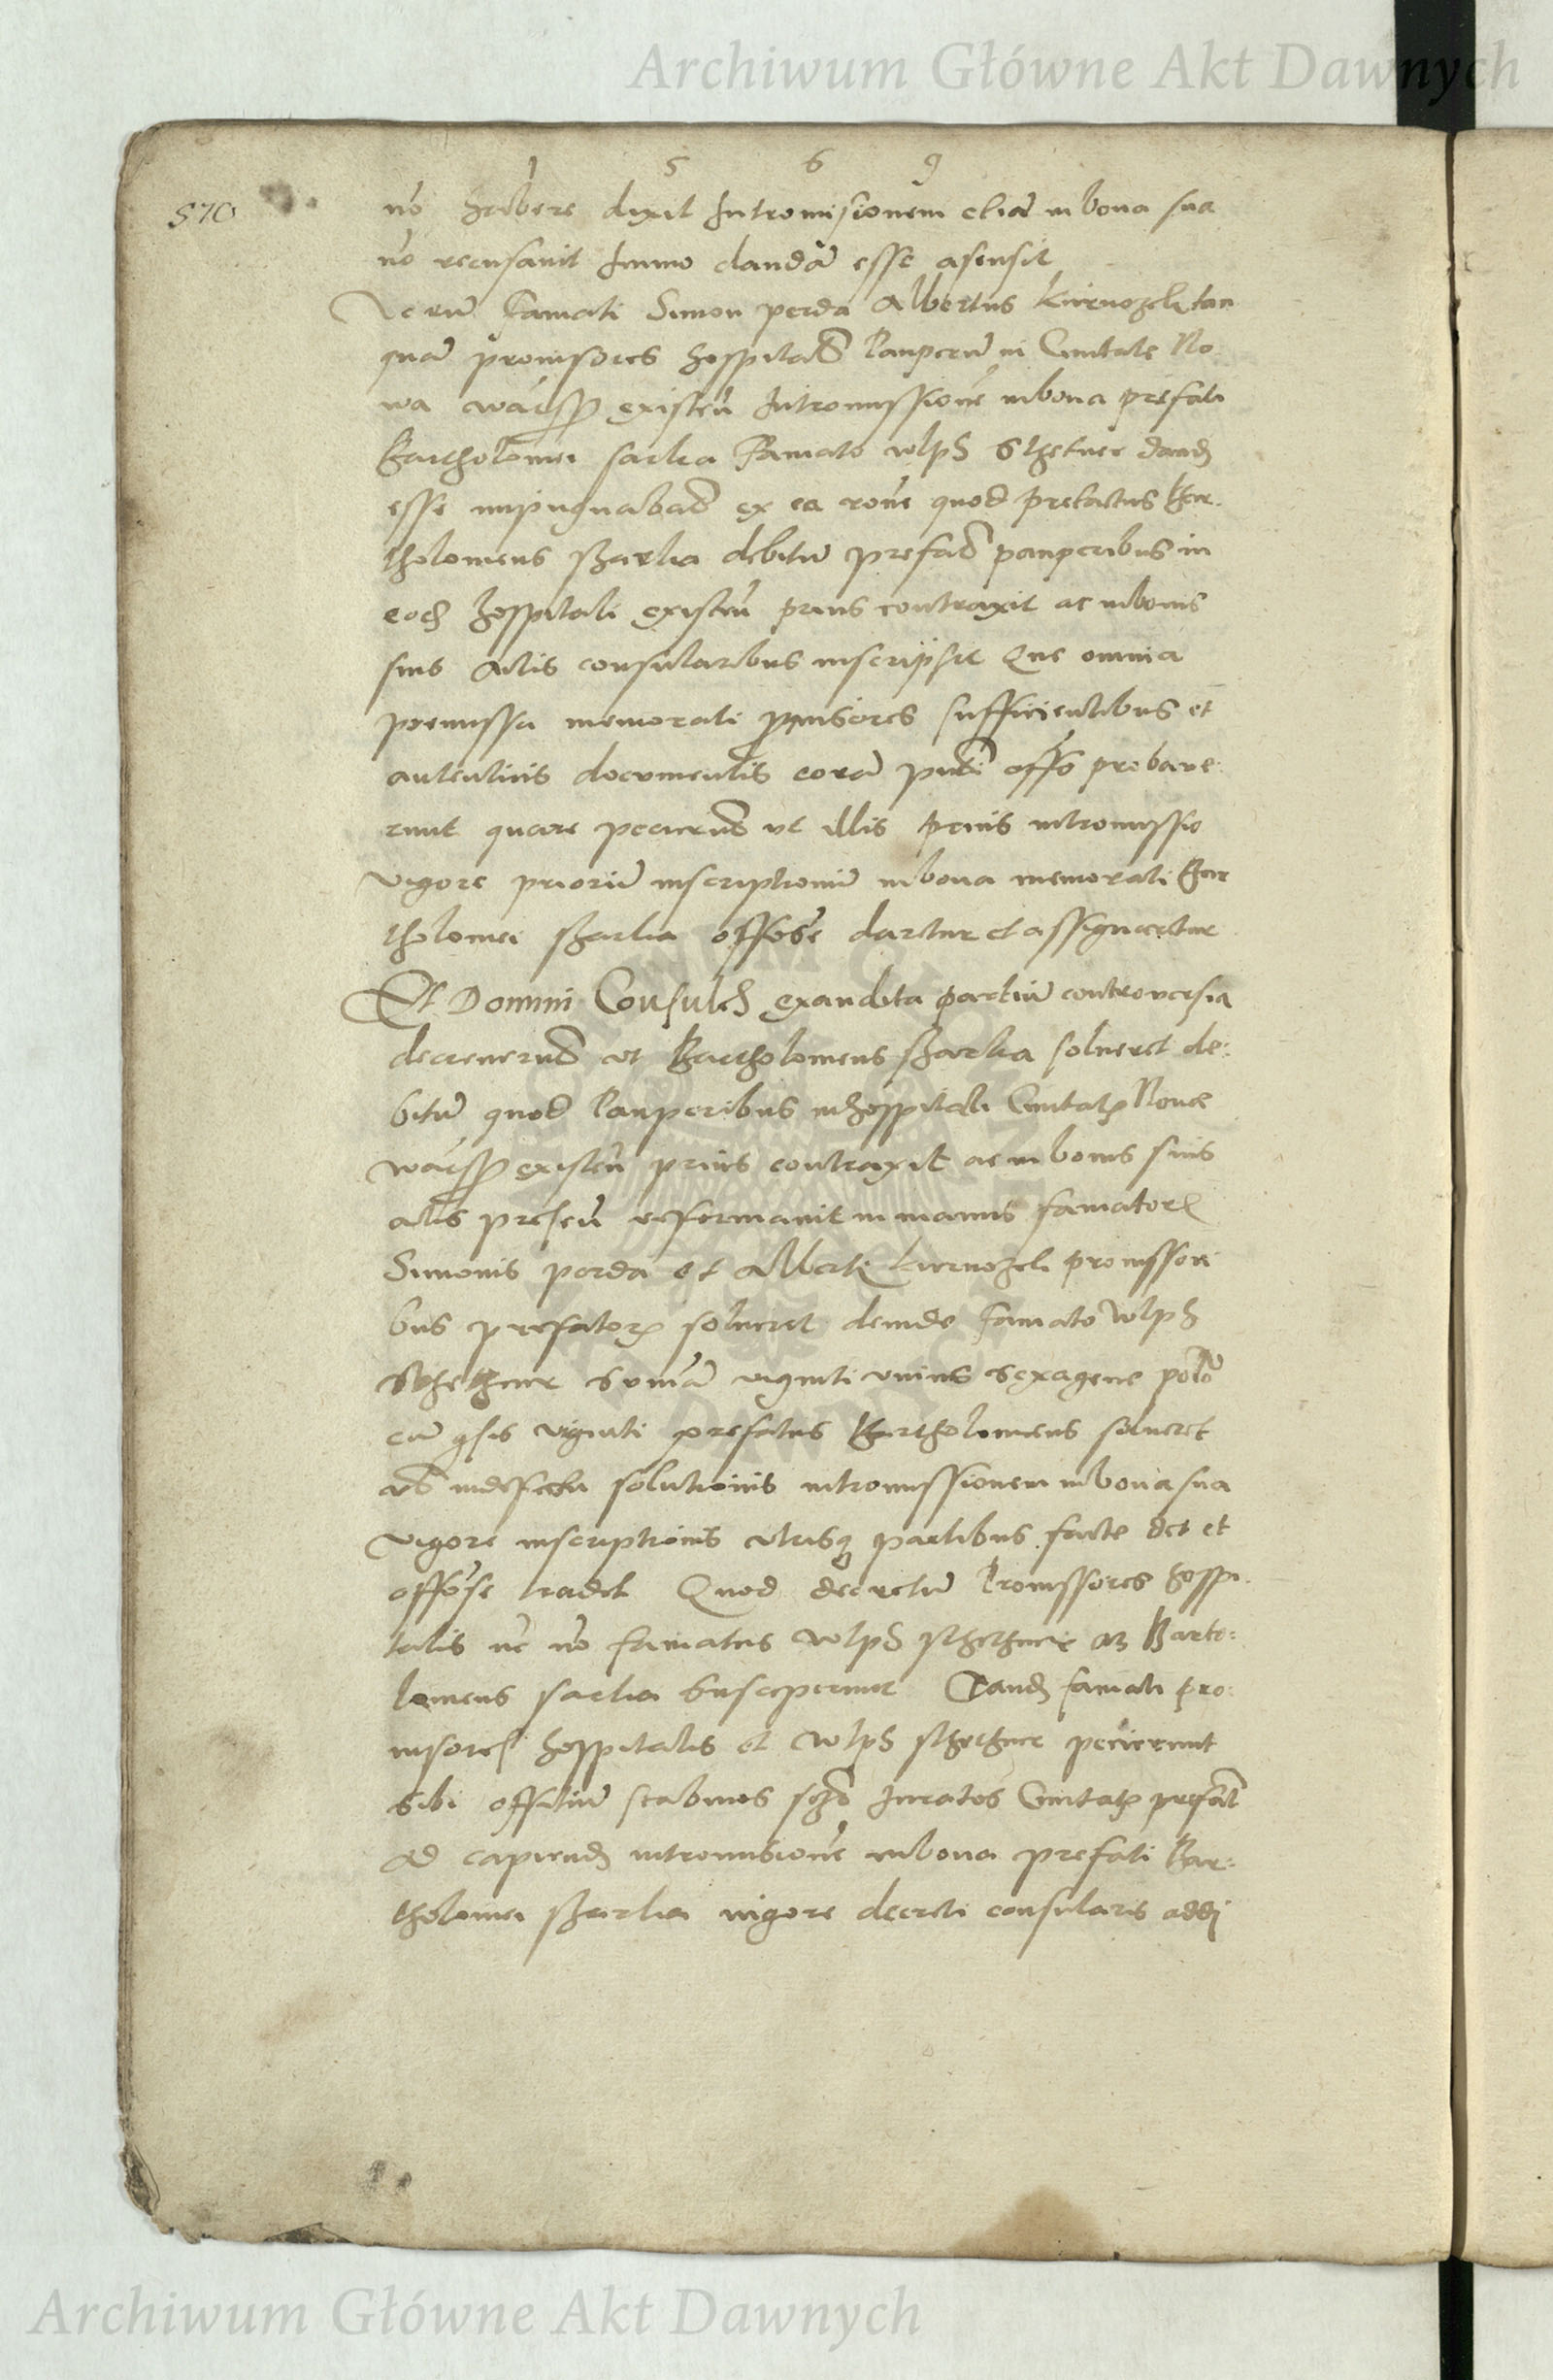 Archiwum Główne Akt Dawnych
1 5 6 9
570
nō habere dixit Intromisionem etiā in bona sua
nō recusavit Immo dandā esse asensit
Verū Famati Simon perda Albertus kurnozek tan
quā provisores hospitał Pauperū in Civitate No
wa warsß existeñ Intromissionē in bona prefati
Bartholomei sarka Famato wlpß Sthetner dandß
esse impugnabāt ex ea rōne quod prefactus Bar.
tholomeus skarka debitū prefat pauperibus in
eodß hospitali existeñ prius contraxit ac in bonis
suis Actis consularibus inscripsit Que omnia
premissa memorati provisores sufficientibus et
autenticis documentis corā pnti offō probave:
runt quare pecierūt ut illis prius intromissio
vigore priorū inscriptionū in bona memorati Bar
tholomei skarka offōse daretur et assignaretur
Et Domini Consules exaudita partiū controversia
decreverūt ut Bartholomeus skarka solveret de:
bitū quod Pauperibus in hospitali Civitatß Novae
warsß existeñ prius contraxit ac in bonis suis
actis preseñ reformavit in manus famatorß
Simonis perda et Alberti kurnozek provissori
bus prefatorß solveret deinde Famato wlpß
Sthethner sumā viginti unius sexagene polō
cū gsis viginti prefatus Bartholomeus solveret
in defectu solutionis intromissionem in bona sua
vigore inscriptionis utrisqꝫ partibus facte det et
offōse tradet Quod decretū Provissores hospi
talis nec nō famatus wlpß sthethner ac Barto:
lomeus sarka susceperunt Tandß famati pro:
visores hospitalis et wlpß sthethner pecierunt
sibi offitiū scabinos Juratos Civitatß prefat
Ad capiendß intromisionē in bona prefati Bar:
tholomei skarka vigore decreti consularis addi
Archiwum Główne Akt Dawnych